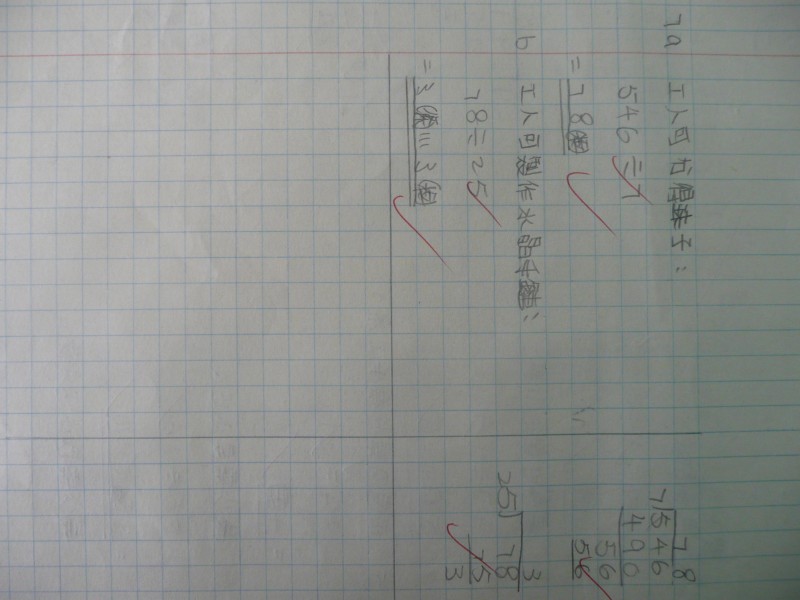 7a 工人可打得珠子:
546÷7
=78(個)
b 工人可製作水晶手鏈:
78÷25
=3(條)...3(個)
78
7)546
490
56
56
3
25)78
75
3